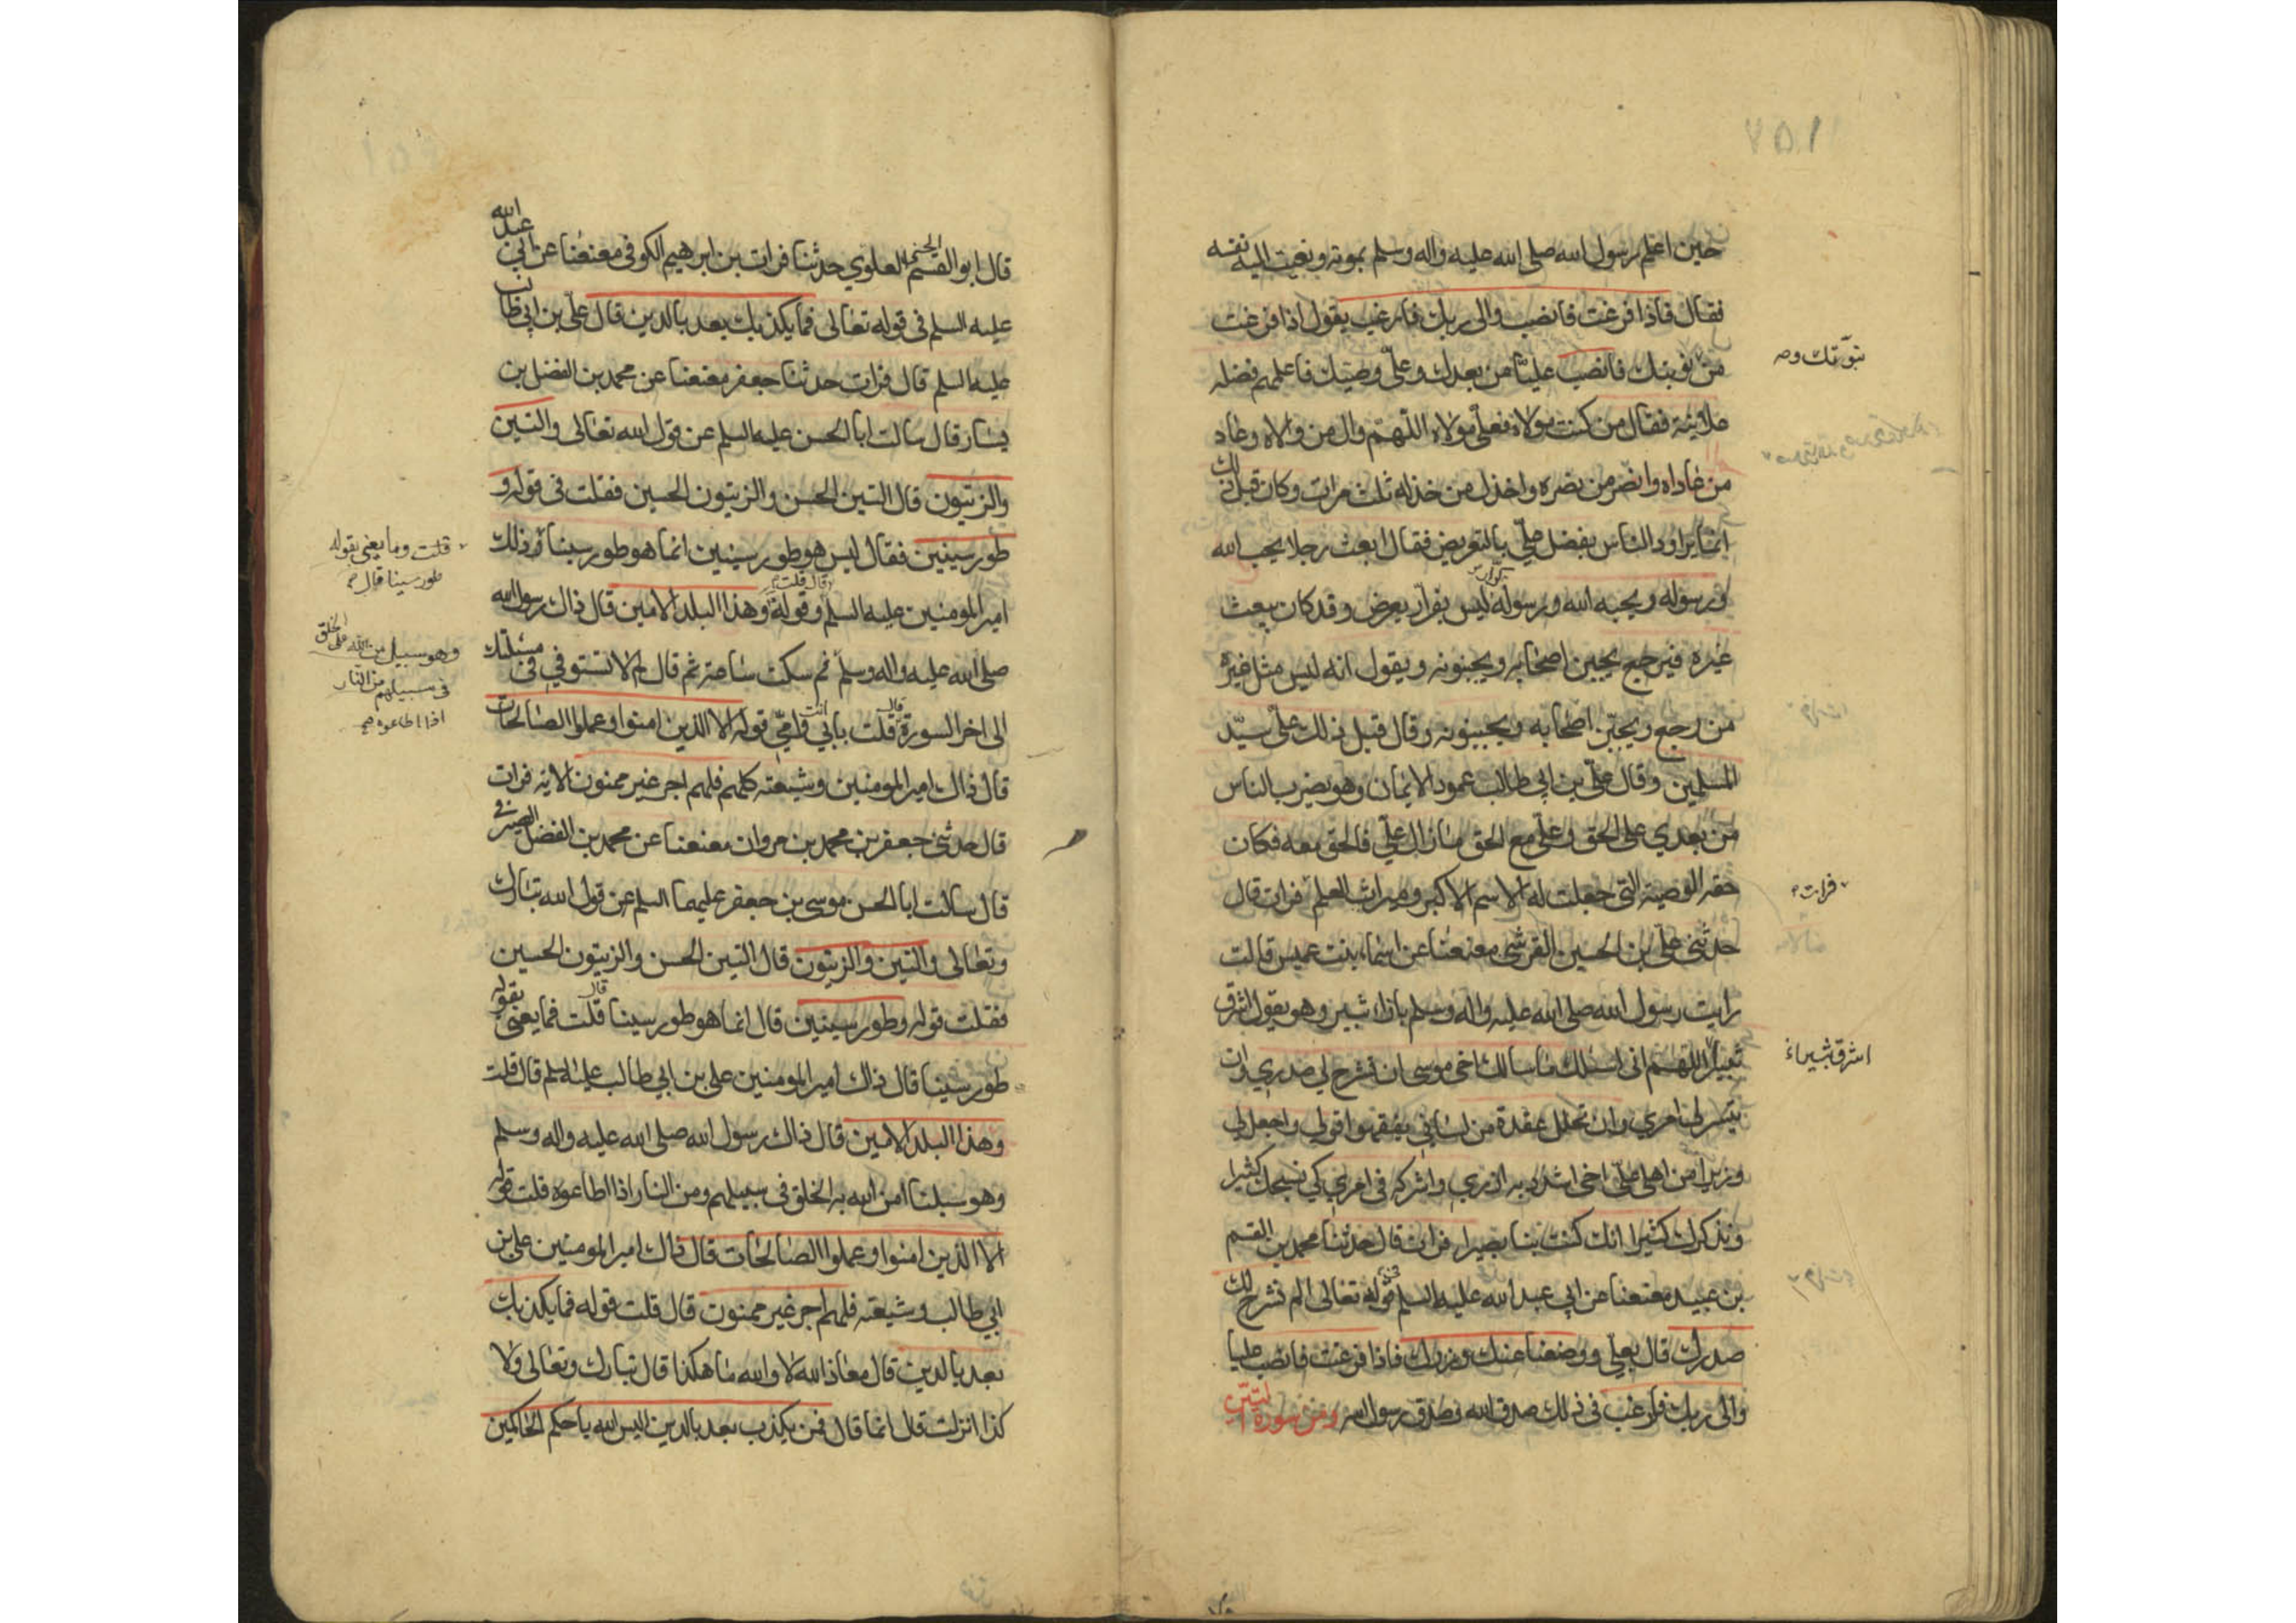 حين اعلم رسول الله صلى الله عليه واله وسلم بموته ونعيت اليه نفسه
فقال فاذا فرغت فانصب والى ربك فارغب يقول اذا فرغت
من نبوتك فانصب عليا من بعدك وعلي وصيك فاعلمهم فضله
علانية فقال من كنت مولاه فعلي مولاه اللهم وال من والاه وعاد
من عاداه وانصر من نصره واخذل من خذله ثلث مرات وكان قبل ذلك
انما يراود الناس بفضل علي بالتعريض فقال ابعث رجلا يحب الله
ورسوله ويحبه الله ورسوله ليس بفرار يعرض وقد كان يبعث
غيره فيرجع يجبن اصحابه ويجبنونه ويقول انه ليس مثل غيره
من رجع ويجبن اصحابه ويجبنونه وقال قبل ذلك علي سيد
المسلمين وقال علي بن ابي طالب عمود الايمان وهو يضرب الناس
من بعدي على الحق وعلي مع الحق ما زال علي فالحق معه فكان
حقه الوصية التي جعلت له الاسم الاكبر وميراث العلم فرات قال
حدثني علي بن الحسين القرشي معنعنا عن اسماء بنت عميس قالت
رايت رسول الله صلى الله عليه واله وسلم بازاء ثبير وهو يقول اشرق
ثبير اللهم اني اسئلك ما سالك اخي موسى ان تشرح لي صدري وان
تيسر لي امري وان تحلل عقدة من لساني يفقهوا قولي واجعل لي
وزيرا من اهلي علي اخي اشدد به ازري واشركه في امري كي نسبحك كثيرا
ونذكرك كثيرا انك كنت بنا بصيرا فرات قال حدثنا محمد بن القسم
بن عبيد معنعنا عن ابي عبد الله عليه السلم في قوله تعالى الم نشرح لك
صدرك قال بعلي ووضعنا عنك وزرك فاذا فرغت فانصب عليا
والى ربك فارغب في ذلك صدق الله وصدق رسول الله ومن سورة التين
نبوتك وصہ
فرات
اشرق ثبير
قال ابو القسم الحسني العلوي حدثنا فرات بن ابرهيم الكوفي معنعنا عن ابي عبد الله
عليه السلم في قوله تعالى فما يكذبك بعد بالدين قال علي بن ابي طالب
عليه السلم قال فرات حدثنا جعفر معنعنا عن محمد بن الفضل بن
يسار قال سالت ابا الحسن عليه السلم عن قول الله تعالى والتين
والزيتون قال التين الحسن والزيتون الحسين فقلت في قوله و
طور سينين فقال ليس هو طور سينين انما هو طور سينا ذلك
امير المومنين عليه السلم وقوله وهذا البلد الامين قال ذاك رسول الله
صلى الله عليه واله وسلم ثم سكت ساعة ثم قال لم لا تستوفي في مسئلتك
الى اخر السورة قال قلت بابي انت وامي قوله الا الذين امنوا وعملوا الصالحات
قال ذاك امير المومنين وشيعته كلهم فلهم اجر غير ممنون الاية فرات
قال حدثني جعفر بن محمد بن مروان معنعنا عن محمد بن الفضل الصيرفي
قال سالت ابا الحسن موسى بن جعفر عليهما السلم عن قول الله تبارك
وتعالى والتين والزيتون قال التين الحسن والزيتون الحسين
فقلت قوله وطور سينين قال انما هو طور سينا قال قلت فما يعني بقوله
طور سينا قال ذاك امير المومنين علي بن ابي طالب عليه السلم قال قلت
وهذا البلد الامين قال ذاك رسول الله صلى الله عليه واله وسلم
وهو سبلنا امن الله به الخلق في سبيلهم ومن النار اذا اطاعوه قلت قوله
الا الذين امنوا وعملوا الصالحات قال ذاك امير المومنين علي بن
ابي طالب وشيعته فلهم اجر غير ممنون قال قلت قوله فما يكذبك
بعد بالدين قال معاذ الله لا والله ما هكذا قال تبارك وتعالى ولا
كذا انزلت قال انما قال فمن يكذب بعد بالدين اليس الله باحكم الحاكمين
قلت وما يعني بقوله
طور سينا قال
وهو سبيل من الله على الخلق
في سبيلهم من النار
اذا اطاعوه